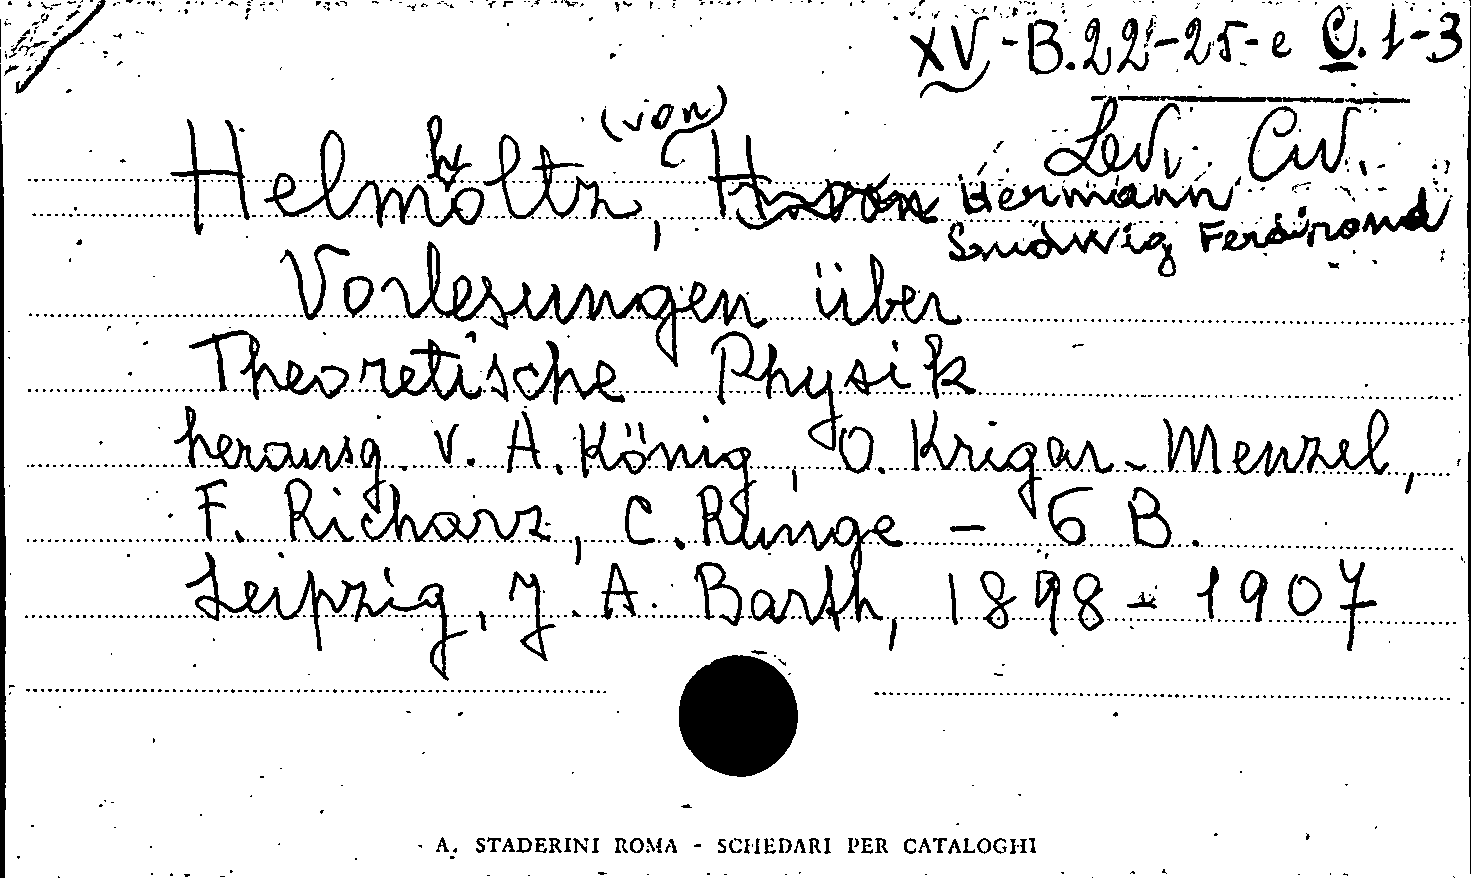 XV-B.22-25-e C.1-3
Lev. Civ.
Helmholtz, (von) Hermann
Ludwig Ferdinand
Vorlesungen über
Theoretische Physik
herausg. v. A. König, O. Krigar-Menzel,
F. Richarz, C. Runge - 6 B.
Leipzig, J. A. Barth, 1898-1907
A. STADERINI ROMA - SCHEDARI PER CATALOGHI